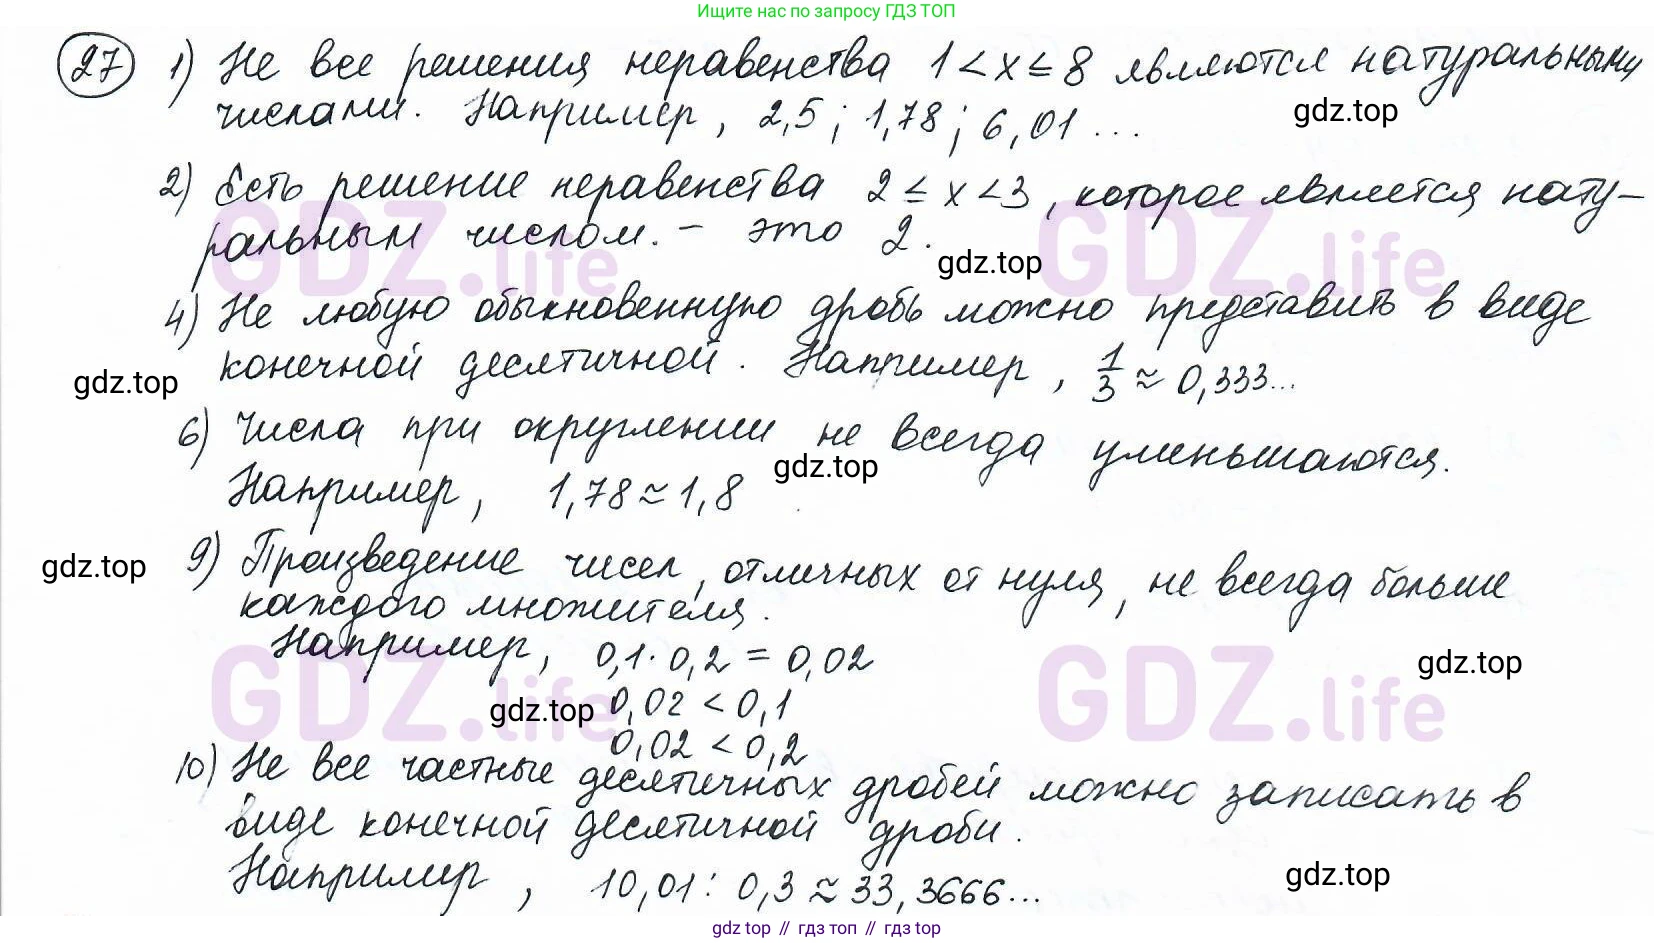 Ищите нас по запросу ГДЗ ТОП
27 1) Не все решения неравенства 1 < x ≤ 8 являются натуральными
числами. Например, 2,5; 1,78; 6,01...
gdz.top
2) Есть решение неравенства 2 ≤ x < 3, которое является нату-
ральным числом. - это 2.
GDZ.life GDZ.life
gdz.top
4) Не любую обыкновенную дробь можно представить в виде
конечной десятичной. Например, 1/3 ≈ 0,333...
gdz.top
6) Числа при округлении не всегда уменьшаются.
gdz.top
Например, 1,78 ≈ 1,8
9) Произведение чисел, отличных от нуля, не всегда больше
gdz.top
каждого множителя.
Например, 0,1 · 0,2 = 0,02
gdz.top
GDZ.life GDZ.life
gdz.top 0,02 < 0,1
0,02 < 0,2
10) Не все частные десятичных дробей можно записать в
виде конечной десятичной дроби.
gdz.top
Например, 10,01 : 0,3 ≈ 33,3666...
gdz top // гдз топ // gdz top